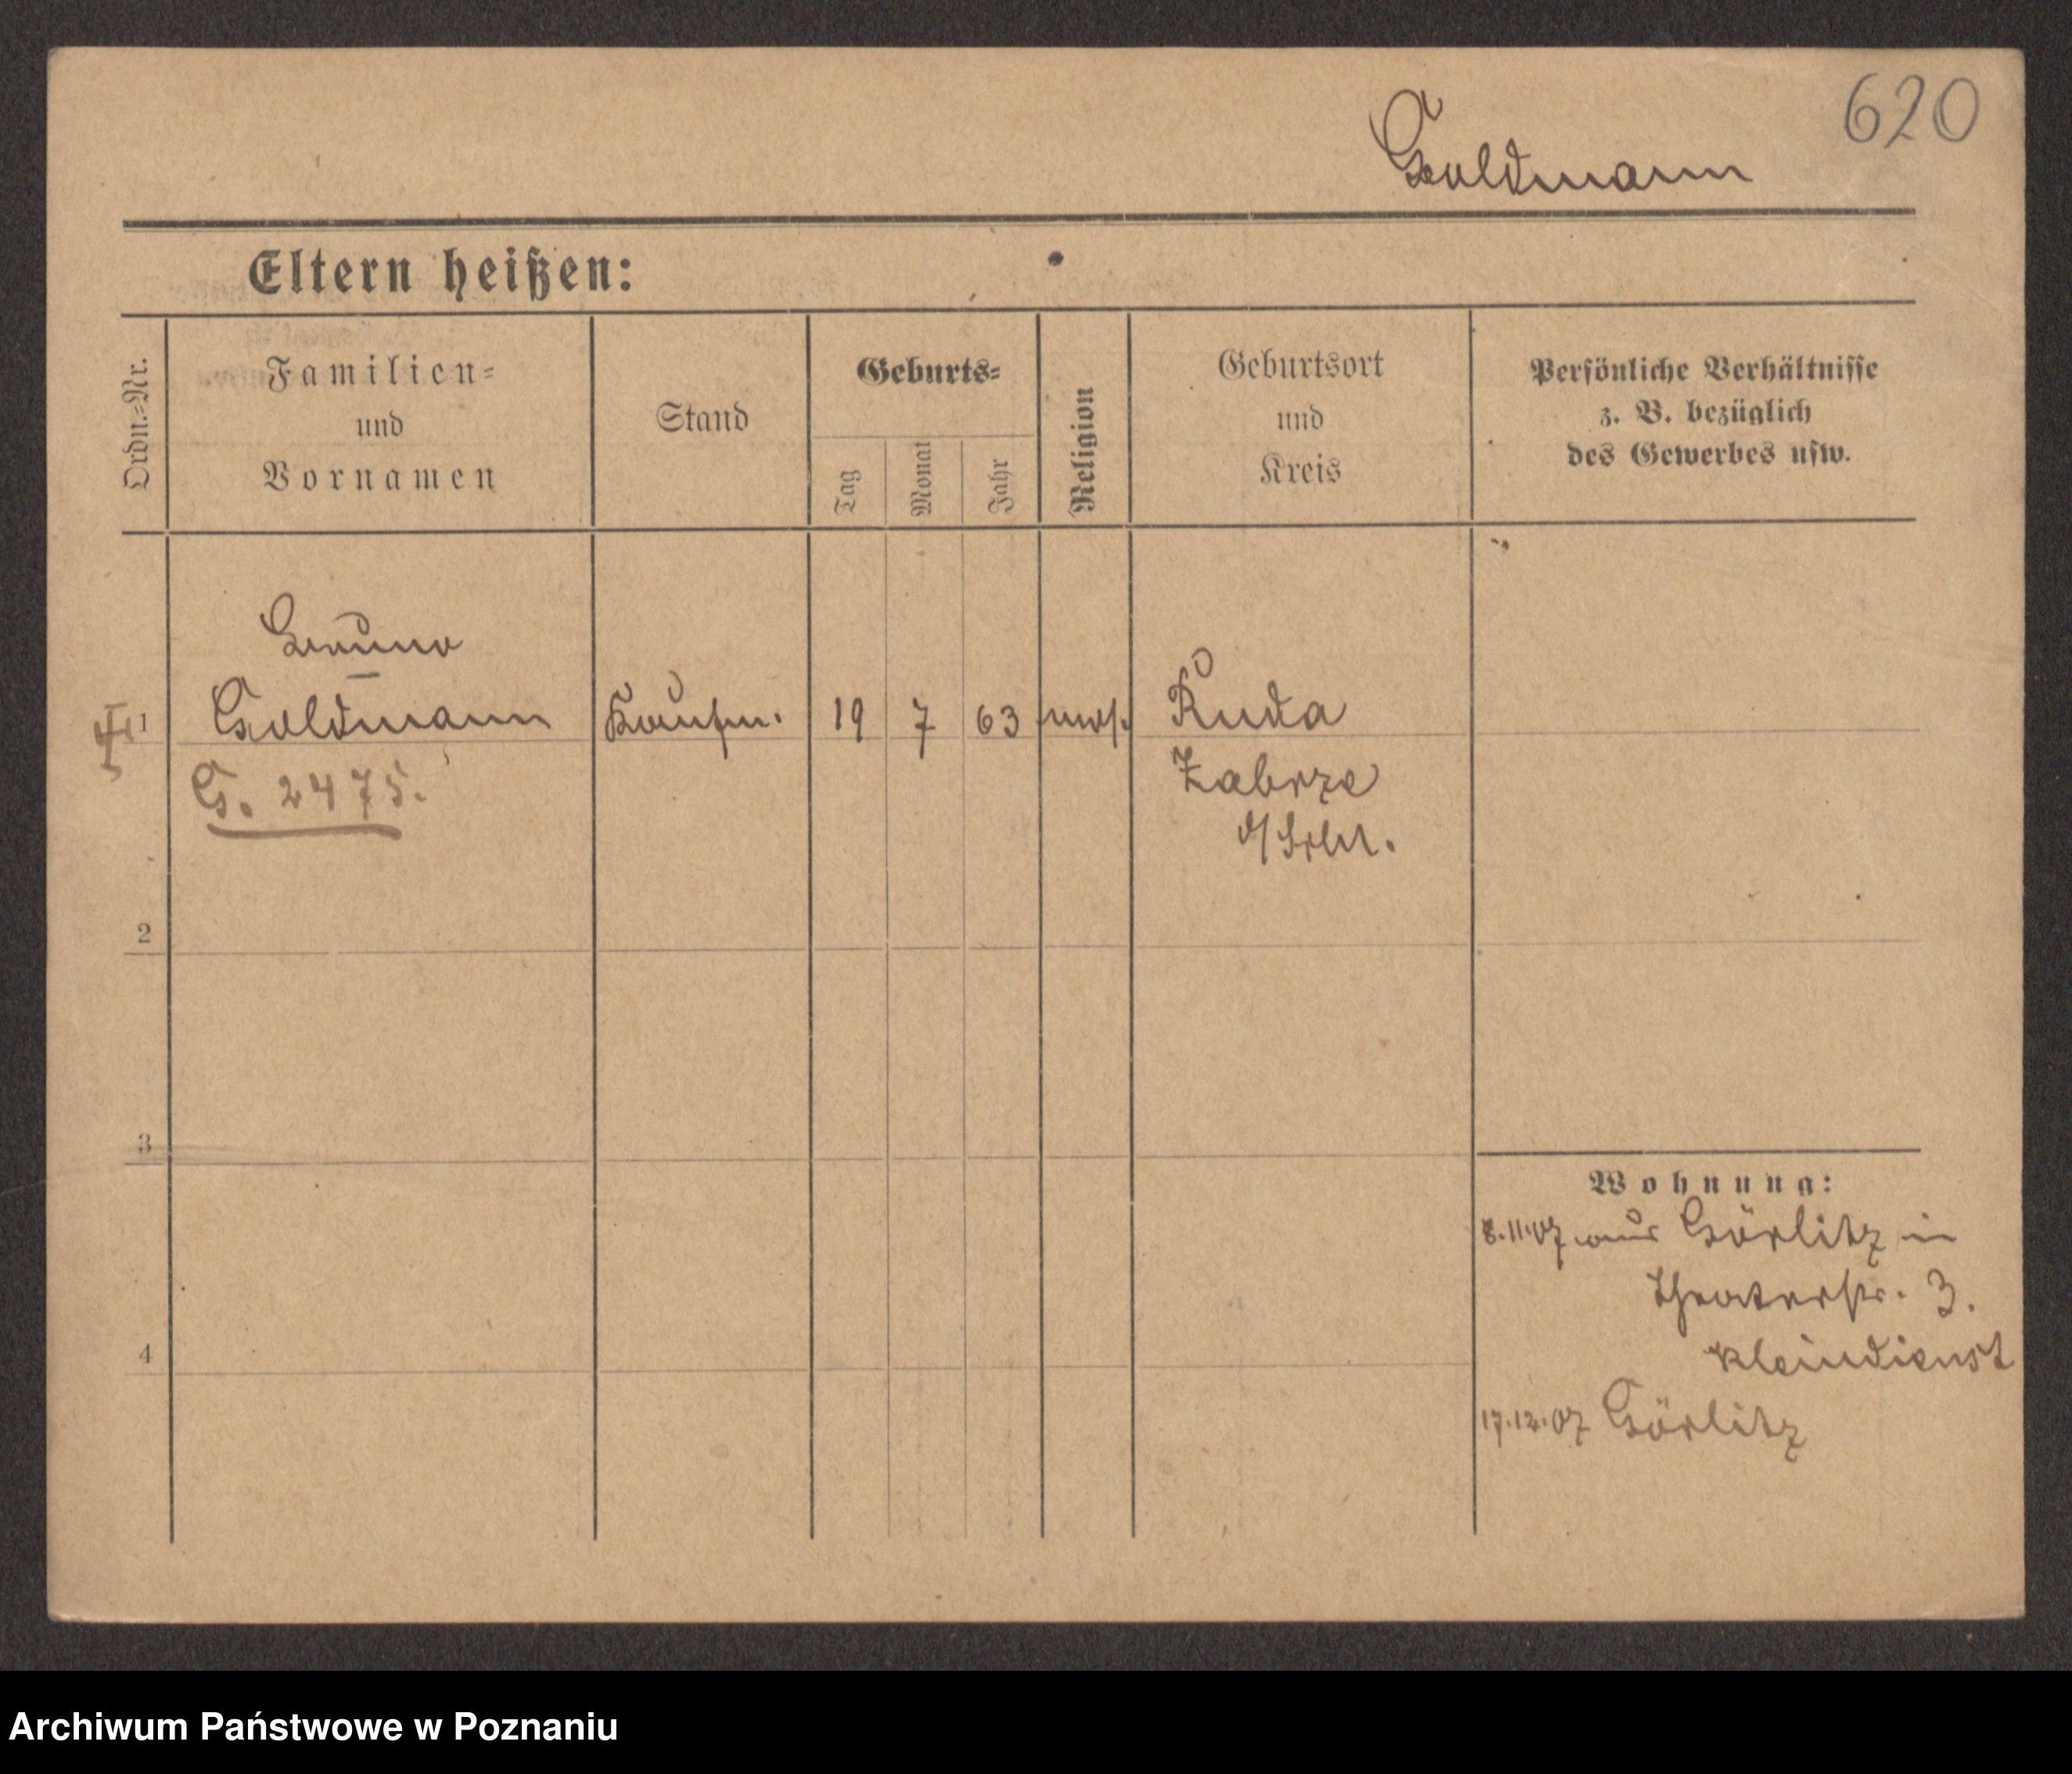 620
Goldmann
Eltern heißen:
Ordn.=Nr.
Familien=
und
Vornamen
Stand
Geburts=
Tag
Monat
Jahr
Religion
Geburtsort
und
Kreis
Persönliche Verhältnisse
z. B. bezüglich
des Gewerbes usw.
Bruno
1 Goldmann Kaufm. 19 7 63 mos. Ruda
G. 2475.
Zabrze
O/Schl.
2
3
Wohnung:
8.11.07 aus Görlitz in
Theaterstr. 3.
Kleindienst
4
17.12.07 Görlitz
Archiwum Państwowe w Poznaniu